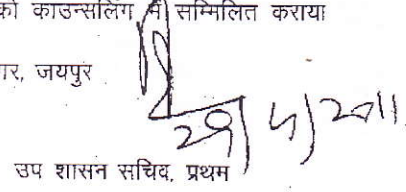 को काउन्सलिंग में सम्मिलित कराया
गर, जयपुर
उप शासन सचिव, प्रथम